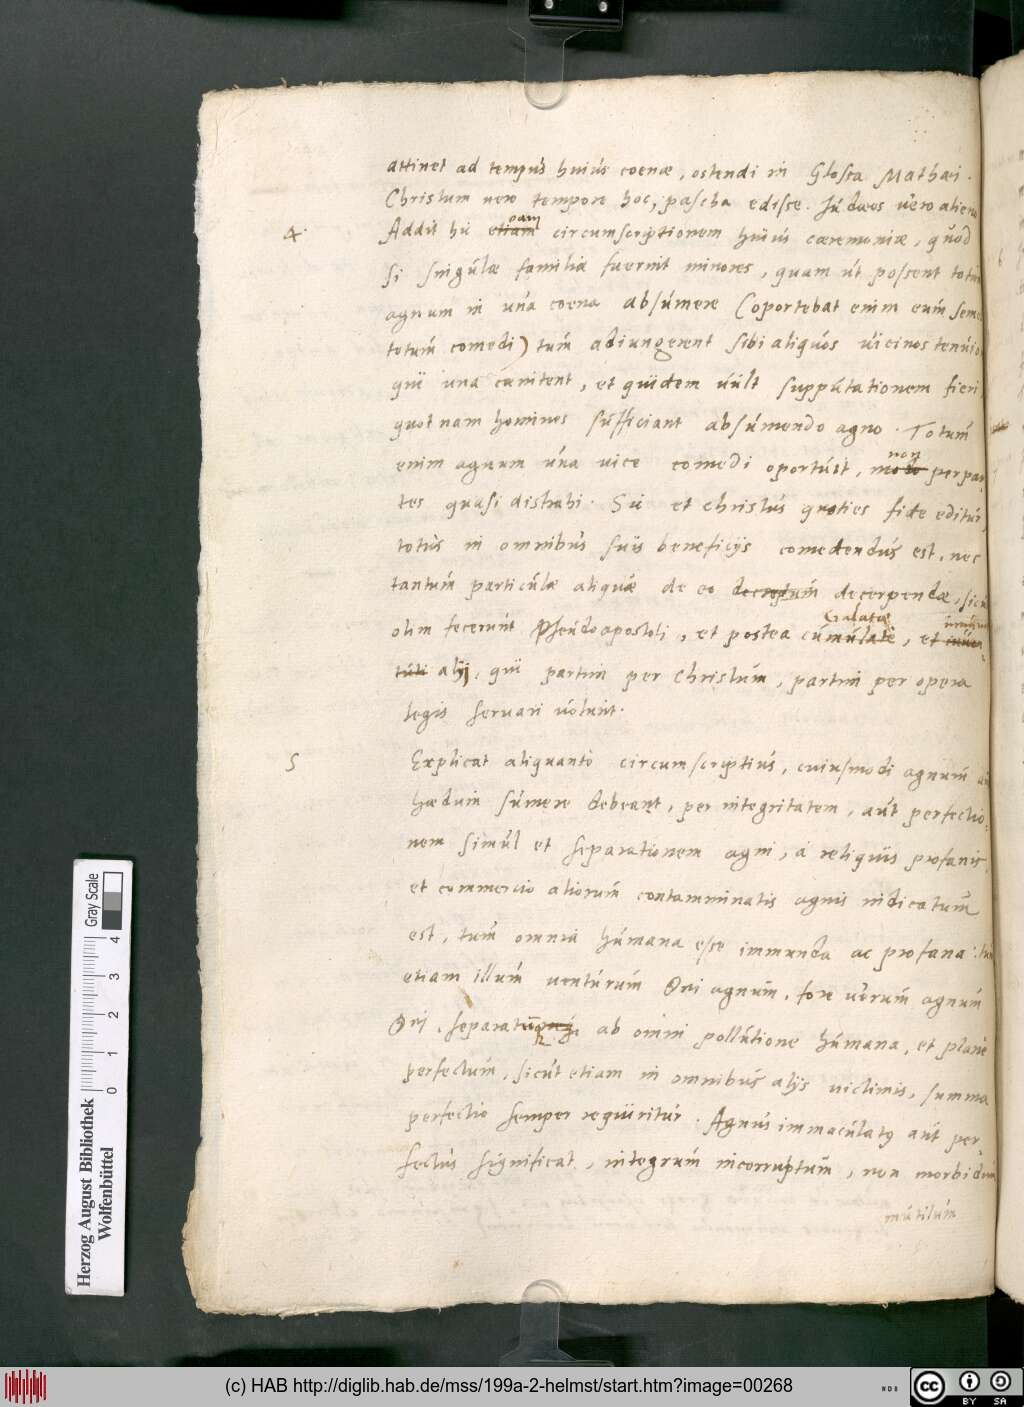 attinet ad tempus huius coenae, ostendi in Glossa Mathaei.
Christum vero tempore hoc, pascha edisse. Iudaeos vero alieno
4. Addit hic etiam eam circumscriptionem huius caeremoniae, quod
si singulae familiae fuerint minores, quam ut possent totum
agnum in una coena absumere (oportebat enim eum semel
totum comedi) tum adiungerent sibi aliquos vicinos
qui una caenitent, et quidem vult supputationem fieri,
quot nam homines sufficiant absumendo agno. Totum
enim agnum una vice comedi oportuit, modo non per par-
tes quasi distrahi. Sic et Christus quoties fide editur,
totus in omnibus suis beneficijs comedendus est, nec
tantum particulae aliquae de eo decreptum decerpendae, sicut
olim fecerunt Pseudoapostoli, et postea cumulate Galatae, et
alij, qui partim per Christum, partim per opera
legis servari volunt.
5 Explicat aliquanto circumscriptius, cuiusmodi agnum
haedum sumere debeant, per integritatem, aut perfectio-
nem simul et separationem agni, a reliquis profanis
et commercio aliorum contamminatis agnis indicatum
est, tum omnia humana esse immunda ac profana: tum
etiam illum venturum Dei agnum, fore verum agnum
Dei, separatum ab omni pollutione humana, et plane
perfectum, sicut etiam in omnibus alijs victimis, summa
perfectio semper requiritur. Agnus immaculatus aut per-
fectus significat, integrum incorruptum, non morbidum
mutilum
Herzog August Bibliothek
Wolfenbüttel
0 1 2 3 4
Gray Scale
(c) HAB http://diglib.hab.de/mss/199a-2-helmst/start.htm?image=00268
cc BY SA